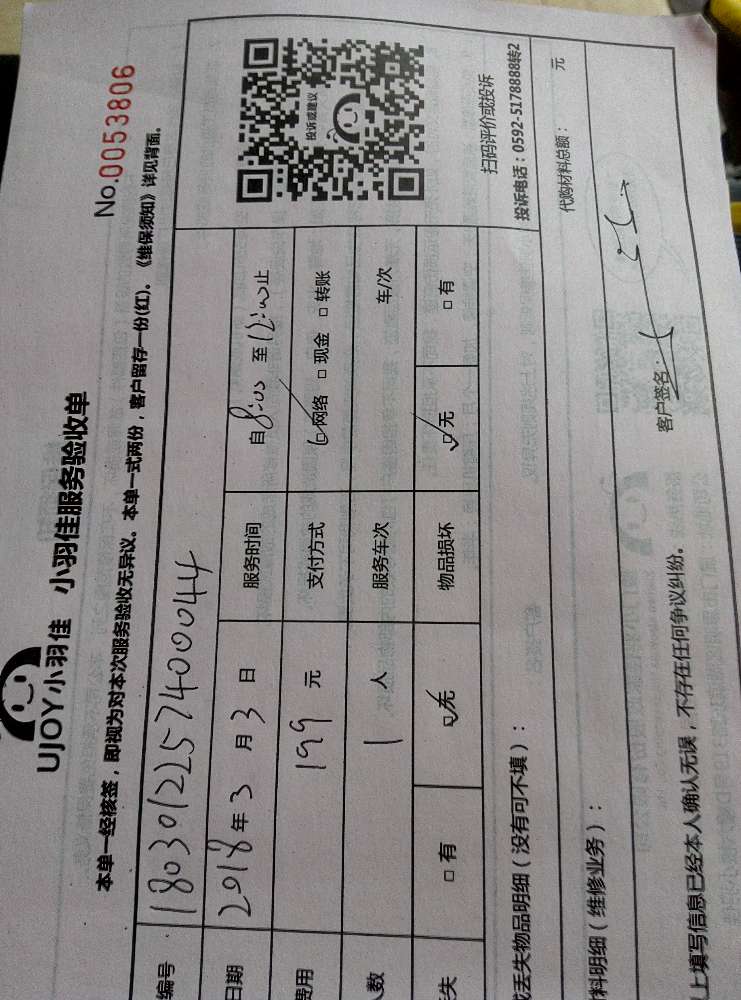 UJOY小羽佳 小羽佳服务验收单
No.0053806
本单一经核签，即视为对本次服务验收无异议。本单一式两份，客户留存一份(红)。《维保须知》详见背面。
编号
日期 2018年3月3日 服务时间 自8:00至12:00止
费用 199元 支付方式 网络 现金 转账
人数 1人 服务车次 车/次
失 有 无 物品损坏 无 有
投诉或建议
扫码评价或投诉
投诉电话：0592-5178888转2
丢失物品明细（没有可不填）：
料明细（维修业务）： 代购材料总额： 元
上填写信息已经本人确认无误，不存在任何争议纠纷。 客户签名：